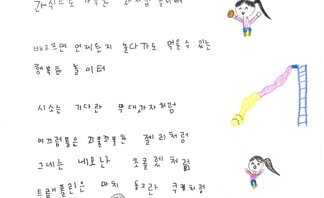 간식으로 가득한 과자집 놀이터
배고프면 언제든지 놀다가도 먹을수 있는
행복한 놀이터
시소는 기다란 막대과자처럼
미끄럼틀은 꼬불꼬불한 젤리처럼
그네는 네모난 초콜렛처럼
트램폴린은 마치 동그란 쿠키처럼